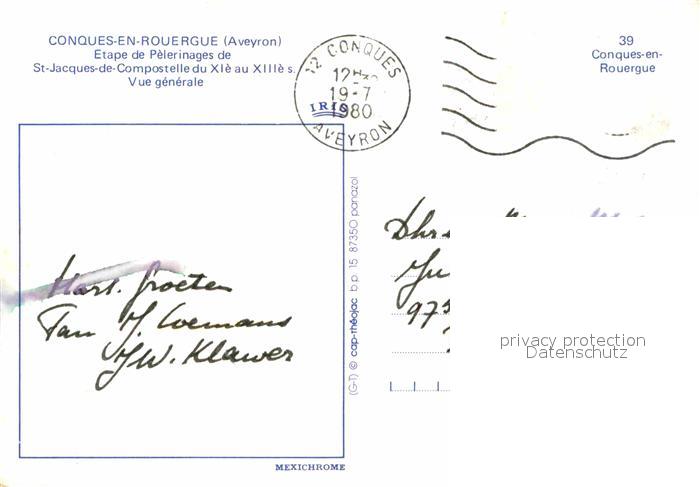 CONQUES-EN-ROUERGUE (Aveyron)
Etape de Pèlerinages de
St-Jacques-de-Compostelle du XIè au XIIIè s.
Vue générale
12 CONQUES
12H
19-7
1980
AVEYRON
IRIS
39
Conques-en-
Rouergue
Hart. groeten
Fam J. Coemans
JW. Klawer
(G-T) © cap-théojac b p. 15 87350 panazol
Dhr
975
privacy protection
Datenschutz
MEXICHROME